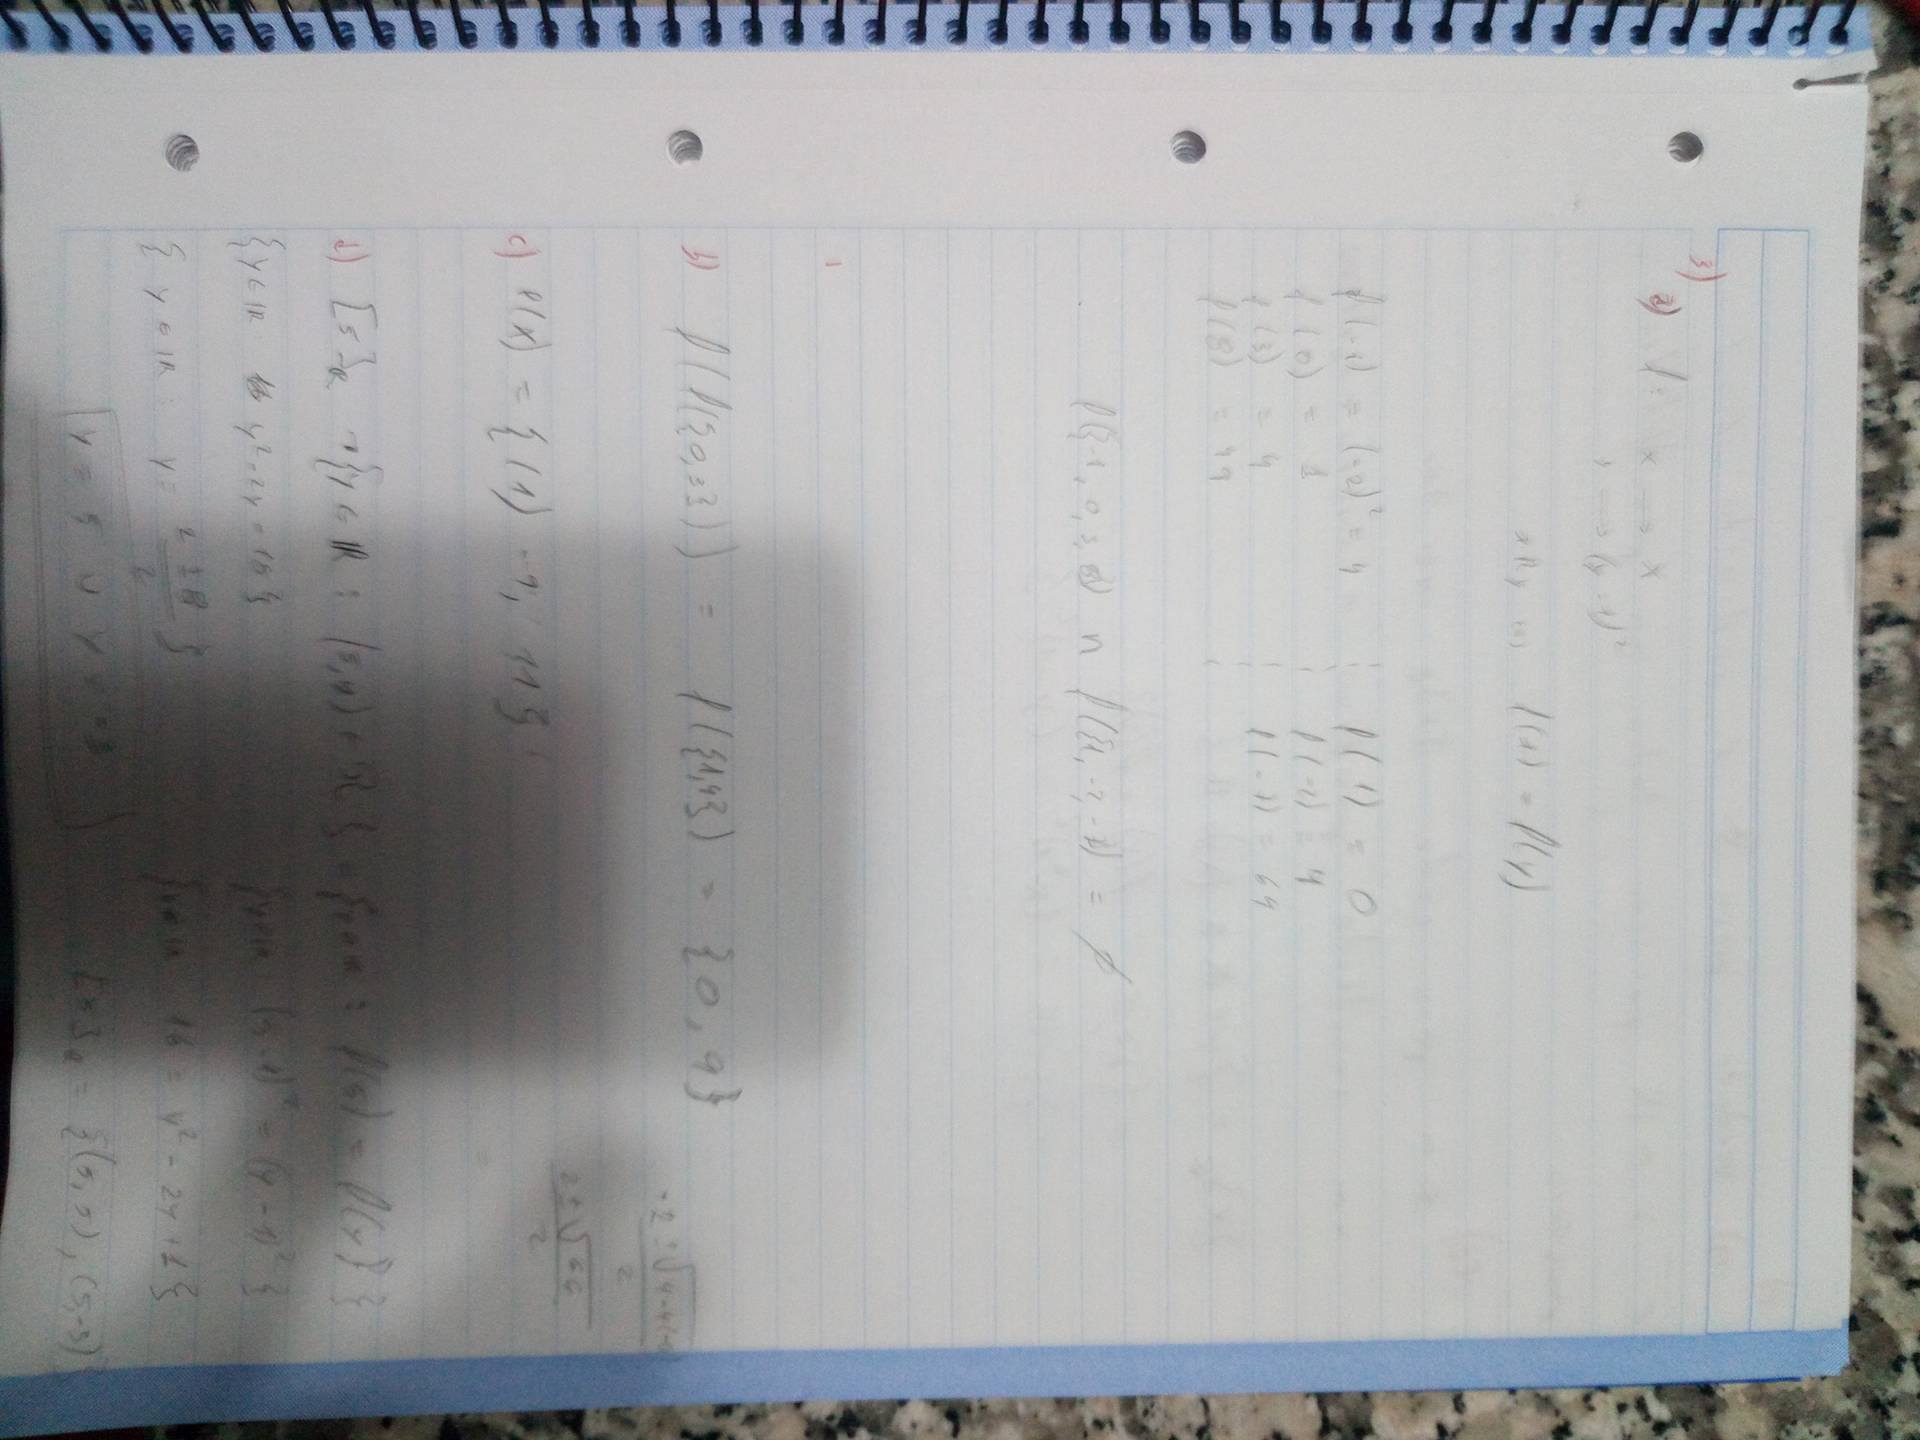 3)
a) f: x → x
y → (y-1)²
xRy ⇔ f(x) = f(y)
f(-1) = (-2)² = 4 f(1) = 0
f(0) = 1 f(-2) = 4
f(3) = 4 f(-7) = 64
f(8) = 49
f({-1, 0, 3, 8}) ∩ f({1, -2, -7}) = ∅
b) f(f({0,3})) = f({1,4}) = {0, 9}
2 ± √
2
2 ± √
2
c) f(X) = {(1) -9, 11}
d) [5]R = {y ∈ ℝ : (5,y) ∈ R} = {y ∈ ℝ : f(5) = f(y)}}
{y ∈ ℝ : y²-2y = 15} {y ∈ ℝ : (5-1)² = (y-1)²}
{y ∈ ℝ : y = 2 ± 8 / 2} {y ∈ ℝ 16 = y² - 2y + 1}
y = 5 ∪ y = -3 [5]R = {(5,5), (5,-3)}